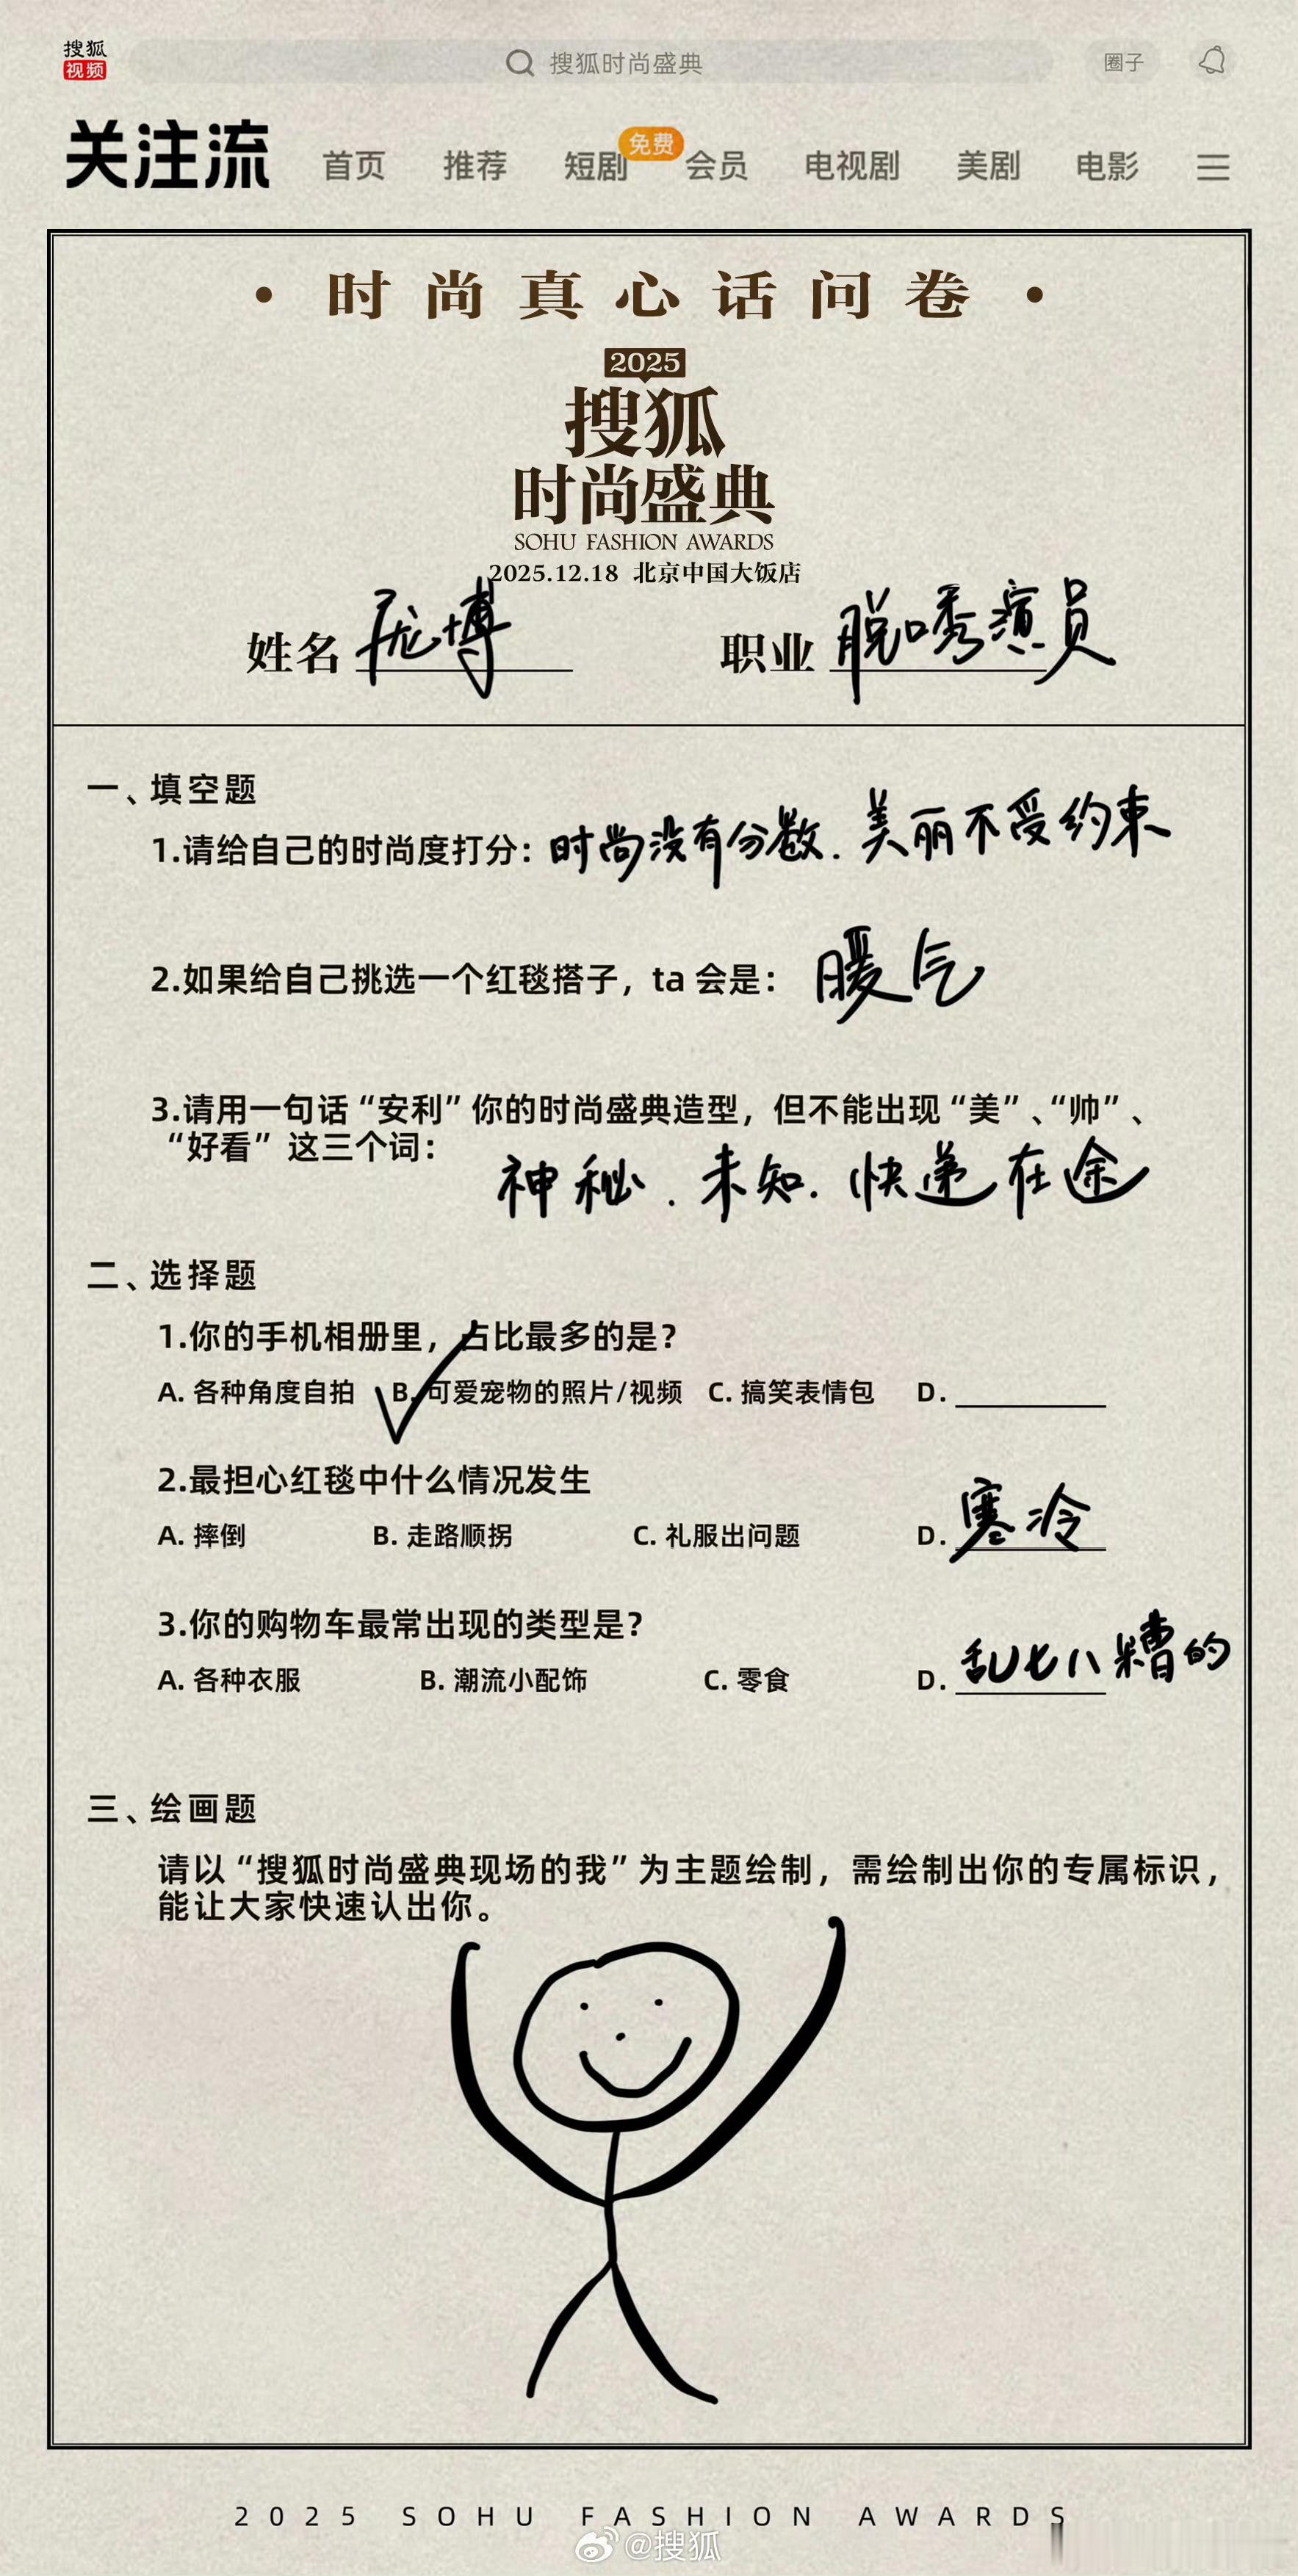 搜狐
视频
搜狐时尚盛典
圈子
关注流 首页 推荐 短剧 免费 会员 电视剧 美剧 电影
• 时尚真心话问卷 •
2025
搜狐
时尚盛典
SOHU FASHION AWARDS
2025.12.18 北京中国大饭店
姓名 庞博 职业 脱口秀演员
一、填空题
1.请给自己的时尚度打分：时尚没有分数.美丽不受约束
2.如果给自己挑选一个红毯搭子，ta 会是： 暖气
3.请用一句话“安利”你的时尚盛典造型，但不能出现“美”、“帅”、
“好看” 这三个词：
神秘.未知.快递在途
二、选择题
1.你的手机相册里，占比最多的是?
A. 各种角度自拍 B. 可爱宠物的照片/视频 C. 搞笑表情包 D.
2.最担心红毯中什么情况发生
A. 摔倒 B. 走路顺拐 C. 礼服出问题 D. 寒冷
3.你的购物车最常出现的类型是?
A. 各种衣服 B. 潮流小配饰 C. 零食 D. 乱七八糟的
三、绘画题
请以“搜狐时尚盛典现场的我”为主题绘制，需绘制出你的专属标识，
能让大家快速认出你。
2025 SOHU FASHION AWARDS
@搜狐